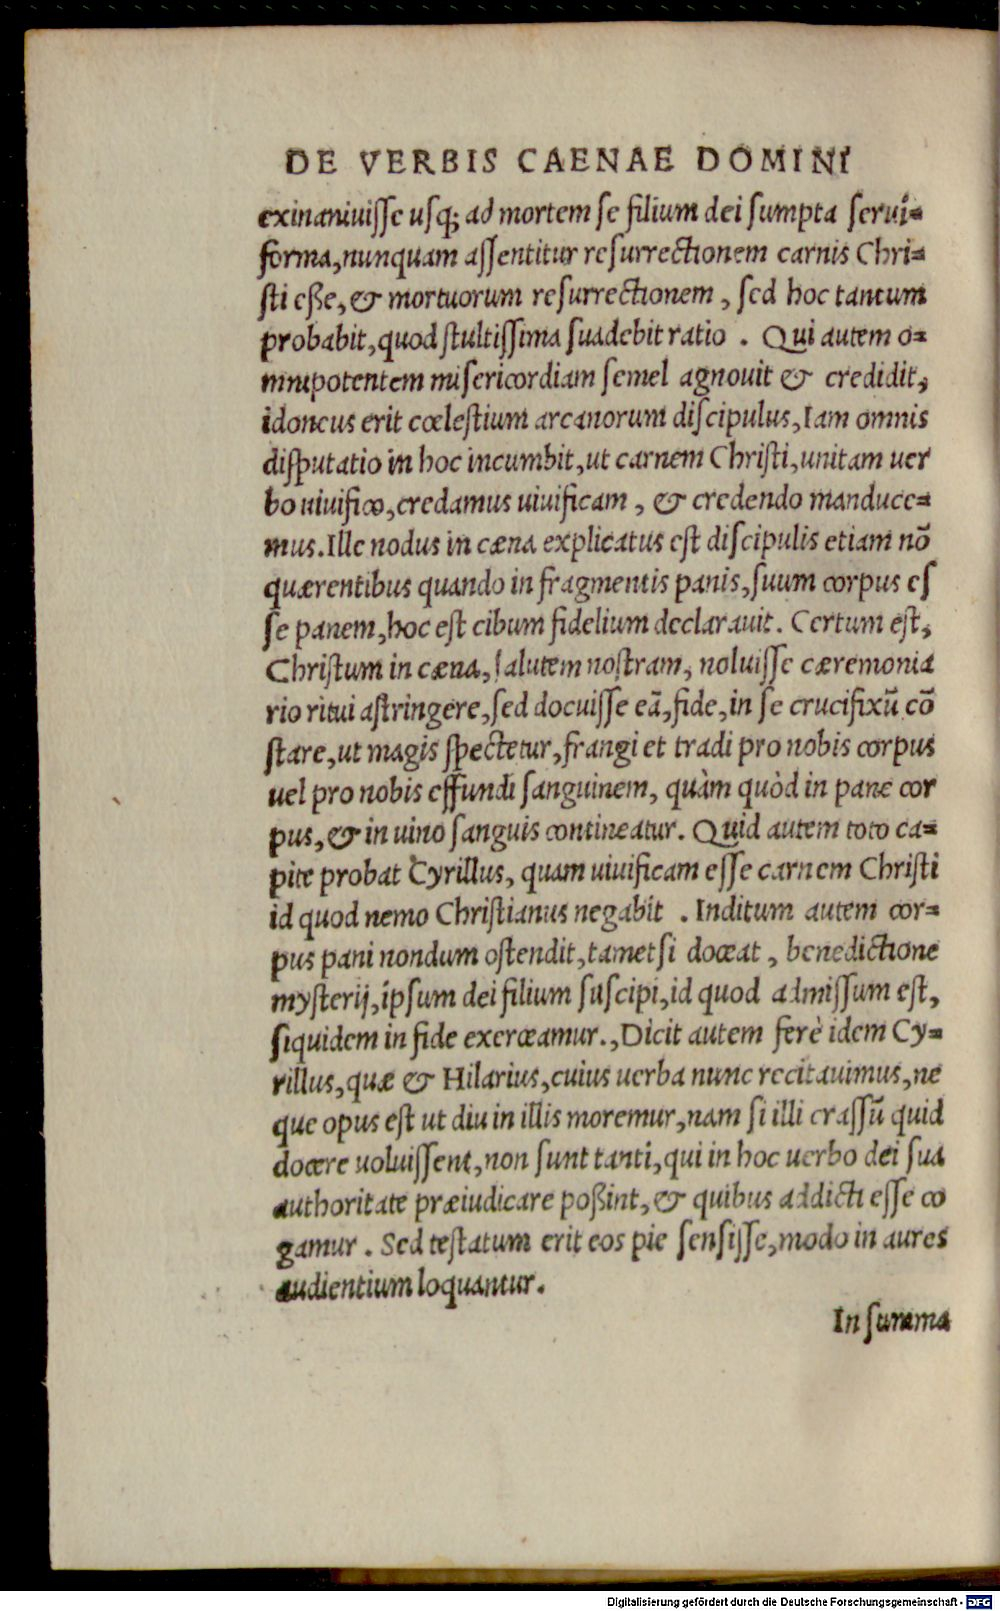 DE VERBIS CAENAE DOMINI
exinaniuiſſe uſq; ad mortem ſe filium dei ſumpta ſerui=
forma, nunquam aſſentitur reſurrectionem carnis Chri=
ſti eße, & mortuorum reſurrectionem, ſed hoc tantum
probabit, quod ſtultiſſima ſuadebit ratio. Qui autem o=
mnipotentem miſericordiam ſemel agnouit & credidit,
idoneus erit cœleſtium arcanorum diſcipulus, Iam omnis
diſputatio in hoc incumbit, ut carnem Chriſti, unitam uer
bo uiuifico, credamus uiuificam, & credendo manduce=
mus. Ille nodus in cæna explicatus eſt diſcipulis etiam nō
quærentibus quando in fragmentis panis, ſuum corpus eſ
ſe panem, hoc eſt cibum fidelium declarauit. Certum eſt,
Chriſtum in cæna, ſalutem noſtram, noluiſſe cæremonia
rio ritui aſtringere, ſed docuiſſe eā, fide, in ſe crucifixū cō
ſtare, ut magis ſpectetur, frangi et tradi pro nobis corpus
uel pro nobis effundi ſanguinem, quàm quòd in pane cor
pus, & in uino ſanguis contineatur. Quid autem toto ca=
pite probat Cyrillus, quam uiuificam eſſe carnem Chriſti
id quod nemo Chriſtianus negabit. Inditum autem cor=
pus pani nondum oſtendit, tametſi doceat, benedictione
myſterij, ipſum dei filium ſuſcipi, id quod admiſſum eſt,
ſiquidem in fide exerceamur., Dicit autem ferè idem Cy=
rillus, quæ & Hilarius, cuius uerba nunc recitauimus, ne
que opus eſt ut diu in illis moremur, nam ſi illi craſſū quid
docere uoluiſſent, non ſunt tanti, qui in hoc uerbo dei ſua
authoritate præiudicare poßint, & quibus addicti eſſe co
gamur. Sed teſtatum erit eos pie ſenſiſſe, modo in aures
audientium loquantur.
In ſumma
Digitalisierung gefördert durch die Deutsche Forschungsgemeinschaft - DFG